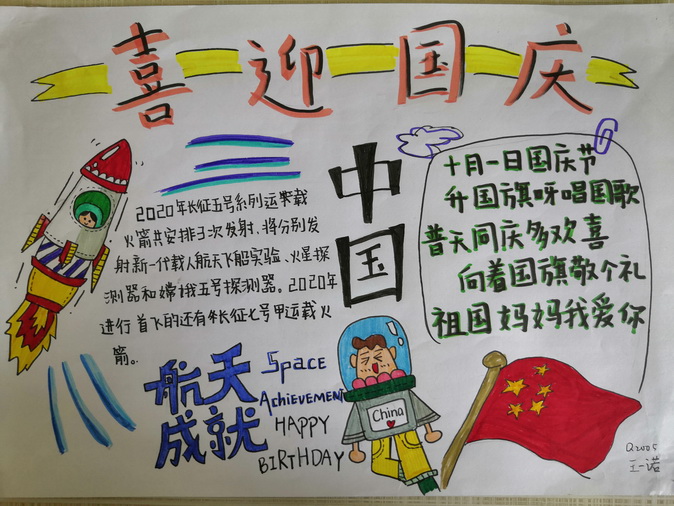 喜迎国庆
2020年长征五号系列运载
火箭共安排3次发射,将分别发
射新一代载人航天飞船实验、火星探
测器和嫦娥五号探测器。2020年
进行首飞的还有长征七号甲运载火
箭。
中国
十月一日国庆节
升国旗呀唱国歌
普天同庆多欢喜
向着国旗敬个礼
祖国妈妈我爱你
航天
成就
Space
Achievement
HAPPY
BIRTHDAY
China
Q2005
王一诺